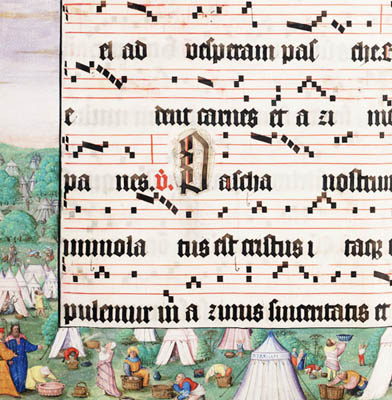 et ad vesperam pas che. E
e dent carnes et a zi
pa nes. V. Pascha nostrum
immola tus est cristus i taq
pulemur in a zimis sinceritatis et